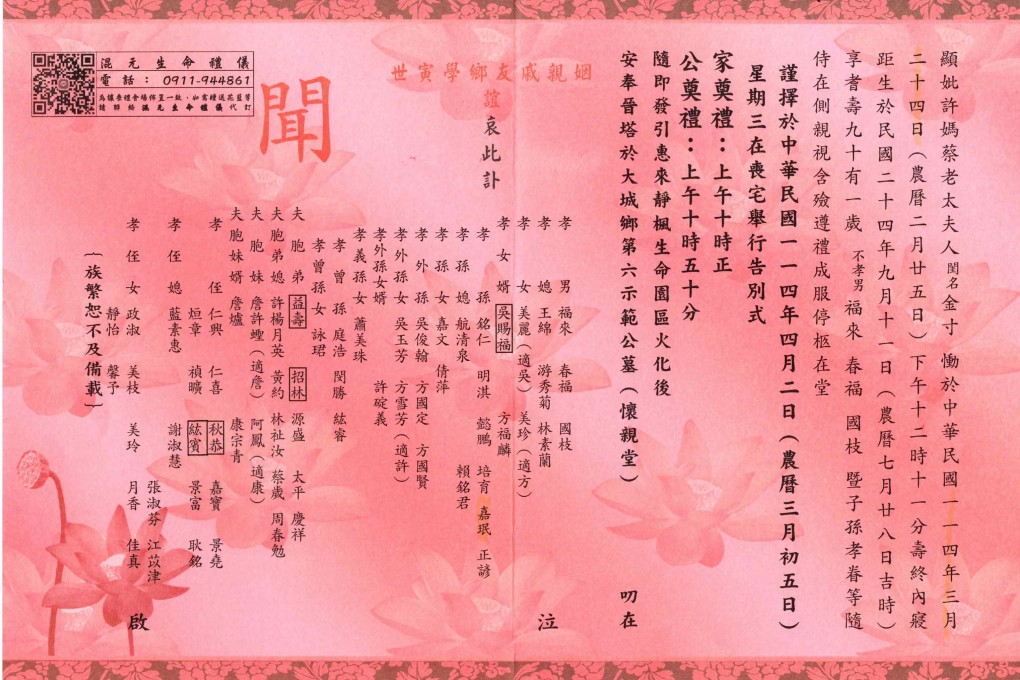 顯妣許媽蔡老太夫人閨名金寸　慟於中華民國一一四年三月
二十四日(農曆二月廿五日)下午十二時十一分壽終內寢
距生於民國二十四年九月十一日(農曆七月廿八日吉時)
享耆壽九十有一歲　不孝男福來　春福　國枝　暨子孫孝眷等隨
侍在側親視含殮遵禮成服停柩在堂
謹擇於中華民國一一四年四月二日(農曆三月初五日)
星期三在喪宅舉行告別式
家奠禮：上午十時正
公奠禮：上午十時五十分
隨即發引惠來靜楓生命園區火化後
安奉晉塔於大城鄉第六示範公墓(懷親堂)
叨在
姻親戚友鄉學寅世
誼哀此訃
聞
孝男　福來　春福　國枝　泣
孝媳　王綿　游秀菊　林素蘭
孝女　美麗(適吳)　美珍(適方)
孝女婿　吳賜福　方福麟
孝孫　銘仁　明淇　懿鵬　培育　嘉珉　正諺
孝孫媳　航清泉　賴銘君
孝孫女　嘉文　倩萍
孝外孫　吳俊翰　方國定　方國賢
孝外孫女　吳玉芳　方雪芳(適許)
孝外孫女婿　許碇義
孝義孫女　蕭美珠
孝曾孫　庭浩　閔勝　紘睿
孝曾孫女　詠珺
夫胞弟　益壽　招林　源盛　太平　慶祥
夫胞弟媳　許楊月英　黃約　林祉汝　蔡歲　周春勉
夫胞妹　詹許螳(適詹)　阿鳳(適康)
夫胞妹婿　詹爐　康宗青
孝侄　仁興　仁喜　秋恭　嘉寶　景堯
烜章　禎曠　紘賓　景富　耿銘
孝侄媳　藍素惠　謝淑慧　張淑芬　江苡津
孝侄女　政淑　美枝　美玲　月香　佳真
靜怡　馨予
啟
(族繁恕不及備載)
混元生命禮儀
電話：0911-944861
為讓奠禮會場佈置一致，如需贈送花籃等
請聯絡混元生命禮儀代訂